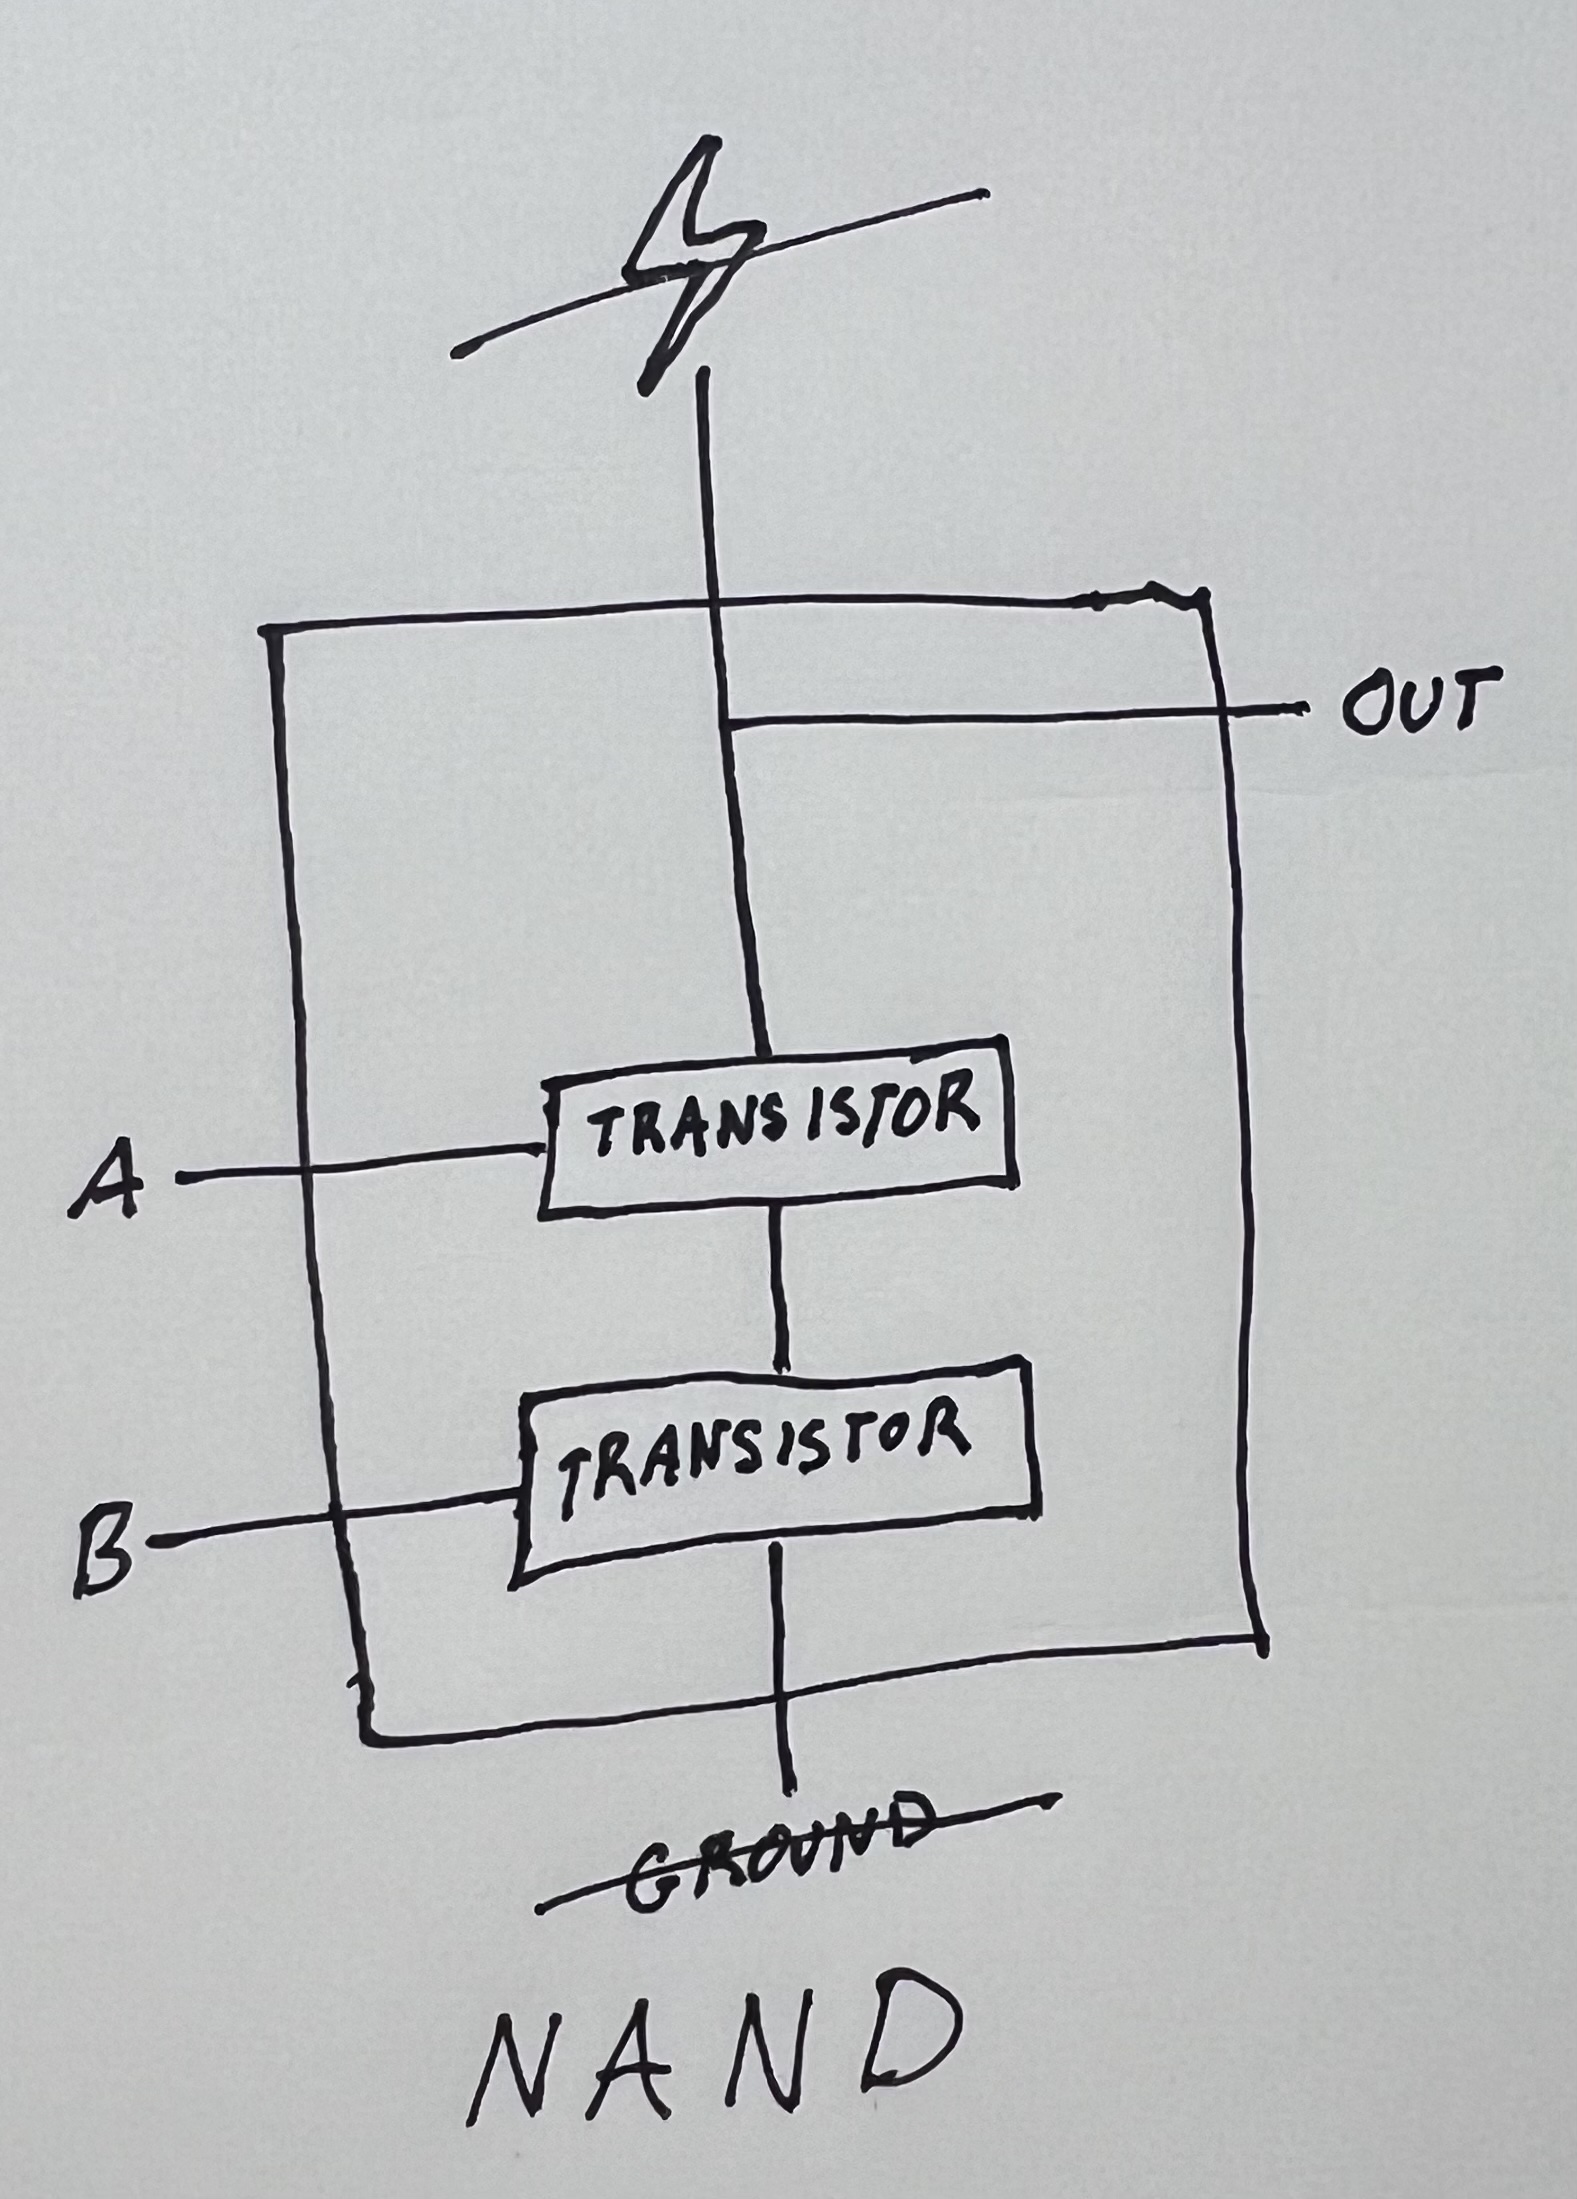 OUT
TRANSISTOR
A
TRANSISTOR
B
GROUND
NAND